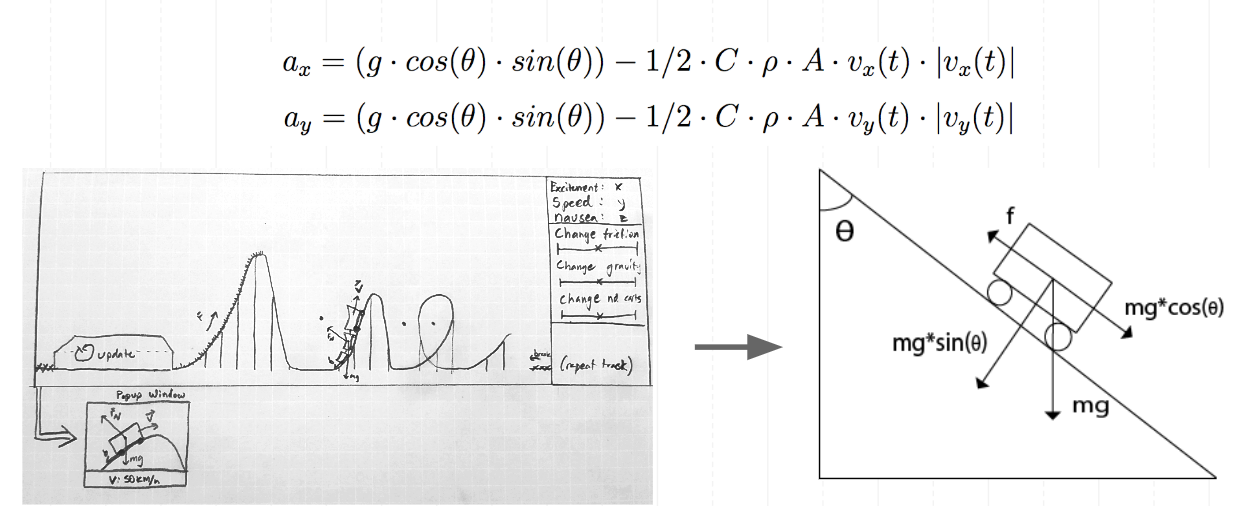 a_x = (g · cos(θ) · sin(θ)) − 1/2 · C · ρ · A · v_x(t) · |v_x(t)|
a_y = (g · cos(θ) · sin(θ)) − 1/2 · C · ρ · A · v_y(t) · |v_y(t)|
Excitement: x
Speed: y
nausea: z
Change friction
Change gravity
Change nd carts
(repeat track)
update
F
v
F_N
mg
Popup Window
F_N
v
mg
V: 50 km/h
θ
f
mg*cos(θ)
mg*sin(θ)
mg